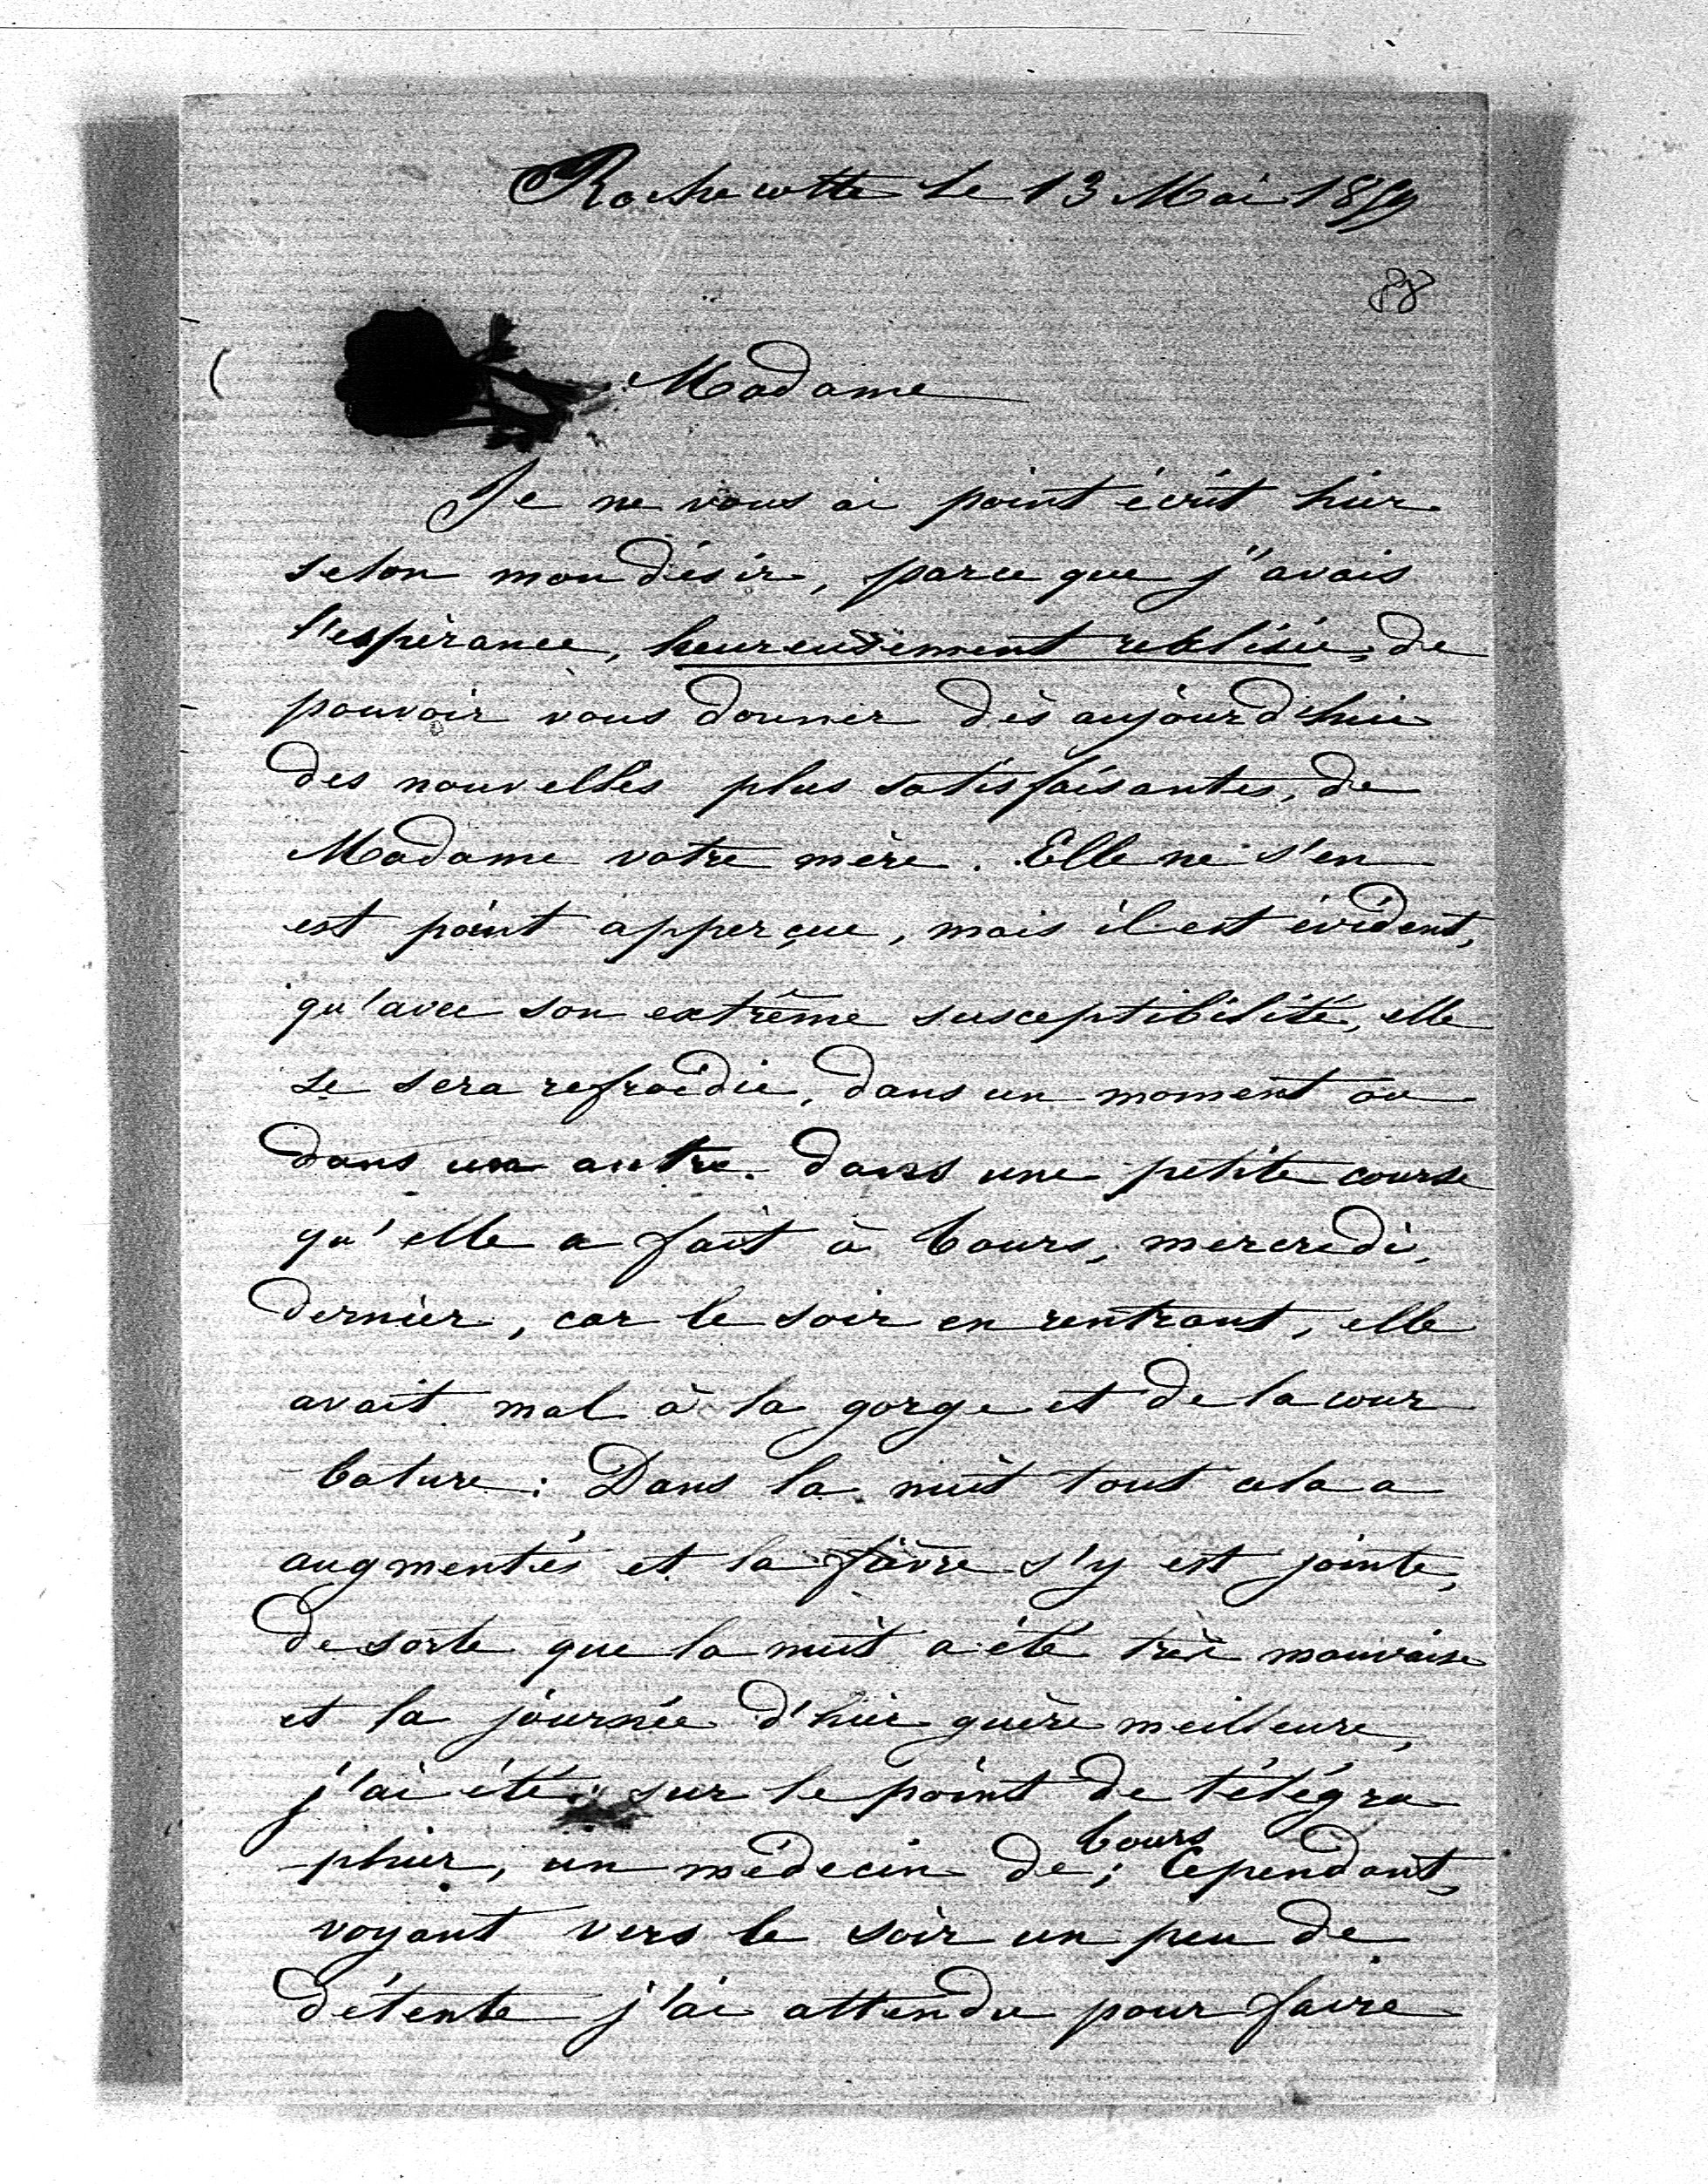 Rochecotte le 13 Mai 1859
88
Madame
Je ne vous ai point écrit hier
selon mon désir, parce que j'avais
l'espérance, heureusement réalisée, de
pouvoir vous donner dès aujourd'hui
des nouvelles plus satisfaisantes, de
Madame votre mère. Elle ne s'en
est point apperçue, mais il est évident,
qu'avec son extrême susceptibilité, elle
se sera refroidie, dans un moment ou
dans un autre. dans une petite course
qu'elle a fait à Tours, mercredi,
dernier, car le soir en rentrant, elle
avait mal à la gorge et de la cour
bature : Dans la nuit tout cela a
augmentés et la fièvre s'y est jointe,
de sorte que la nuit a été très mauvaise
et la journée d'hier guère meilleure,
j'ai été sur le point de télégra
-phier, un médecin de Tours ; Cependant,
voyant vers le soir un peu de
détente j'ai attendu pour faire